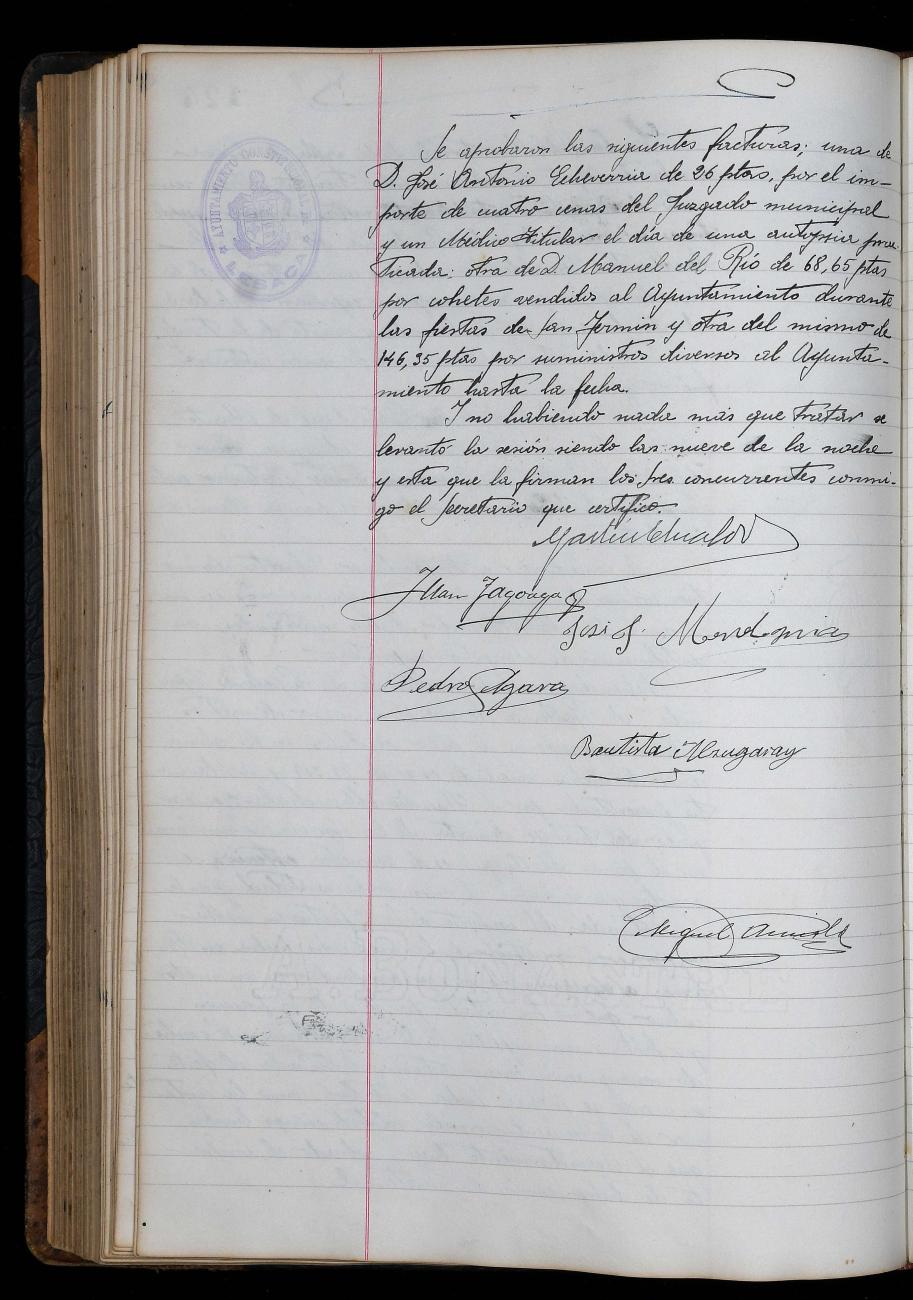 AYUNTAMIENTO CONSTITUCIONAL DE
LESACA
Se aprobaron las siguientes facturas; una de
D. José Antonio Echeverria de 26 ptas, por el im-
porte de cuatro cenas del Juzgado municipal
y un Médico titular el día de una autopsia prac
ticada: otra de D. Manuel del Río de 68,65 ptas
por cohetes vendidos al Ayuntamiento durante
las fiestas de San Fermin y otra del mismo de
146,35 ptas por suministros diversos al Ayunta-
miento hasta la fecha.
Y no habiendo nada más que tratar se
levantó la sesión siendo las nueve de la noche
y esta que la firman los Sres. concurrentes conmi-
go el Secretario que certifico.
Martin
Juan Fagoaga
José J. Mendaguia
Pedro Igara
Bautista Alzugaray
Miguel